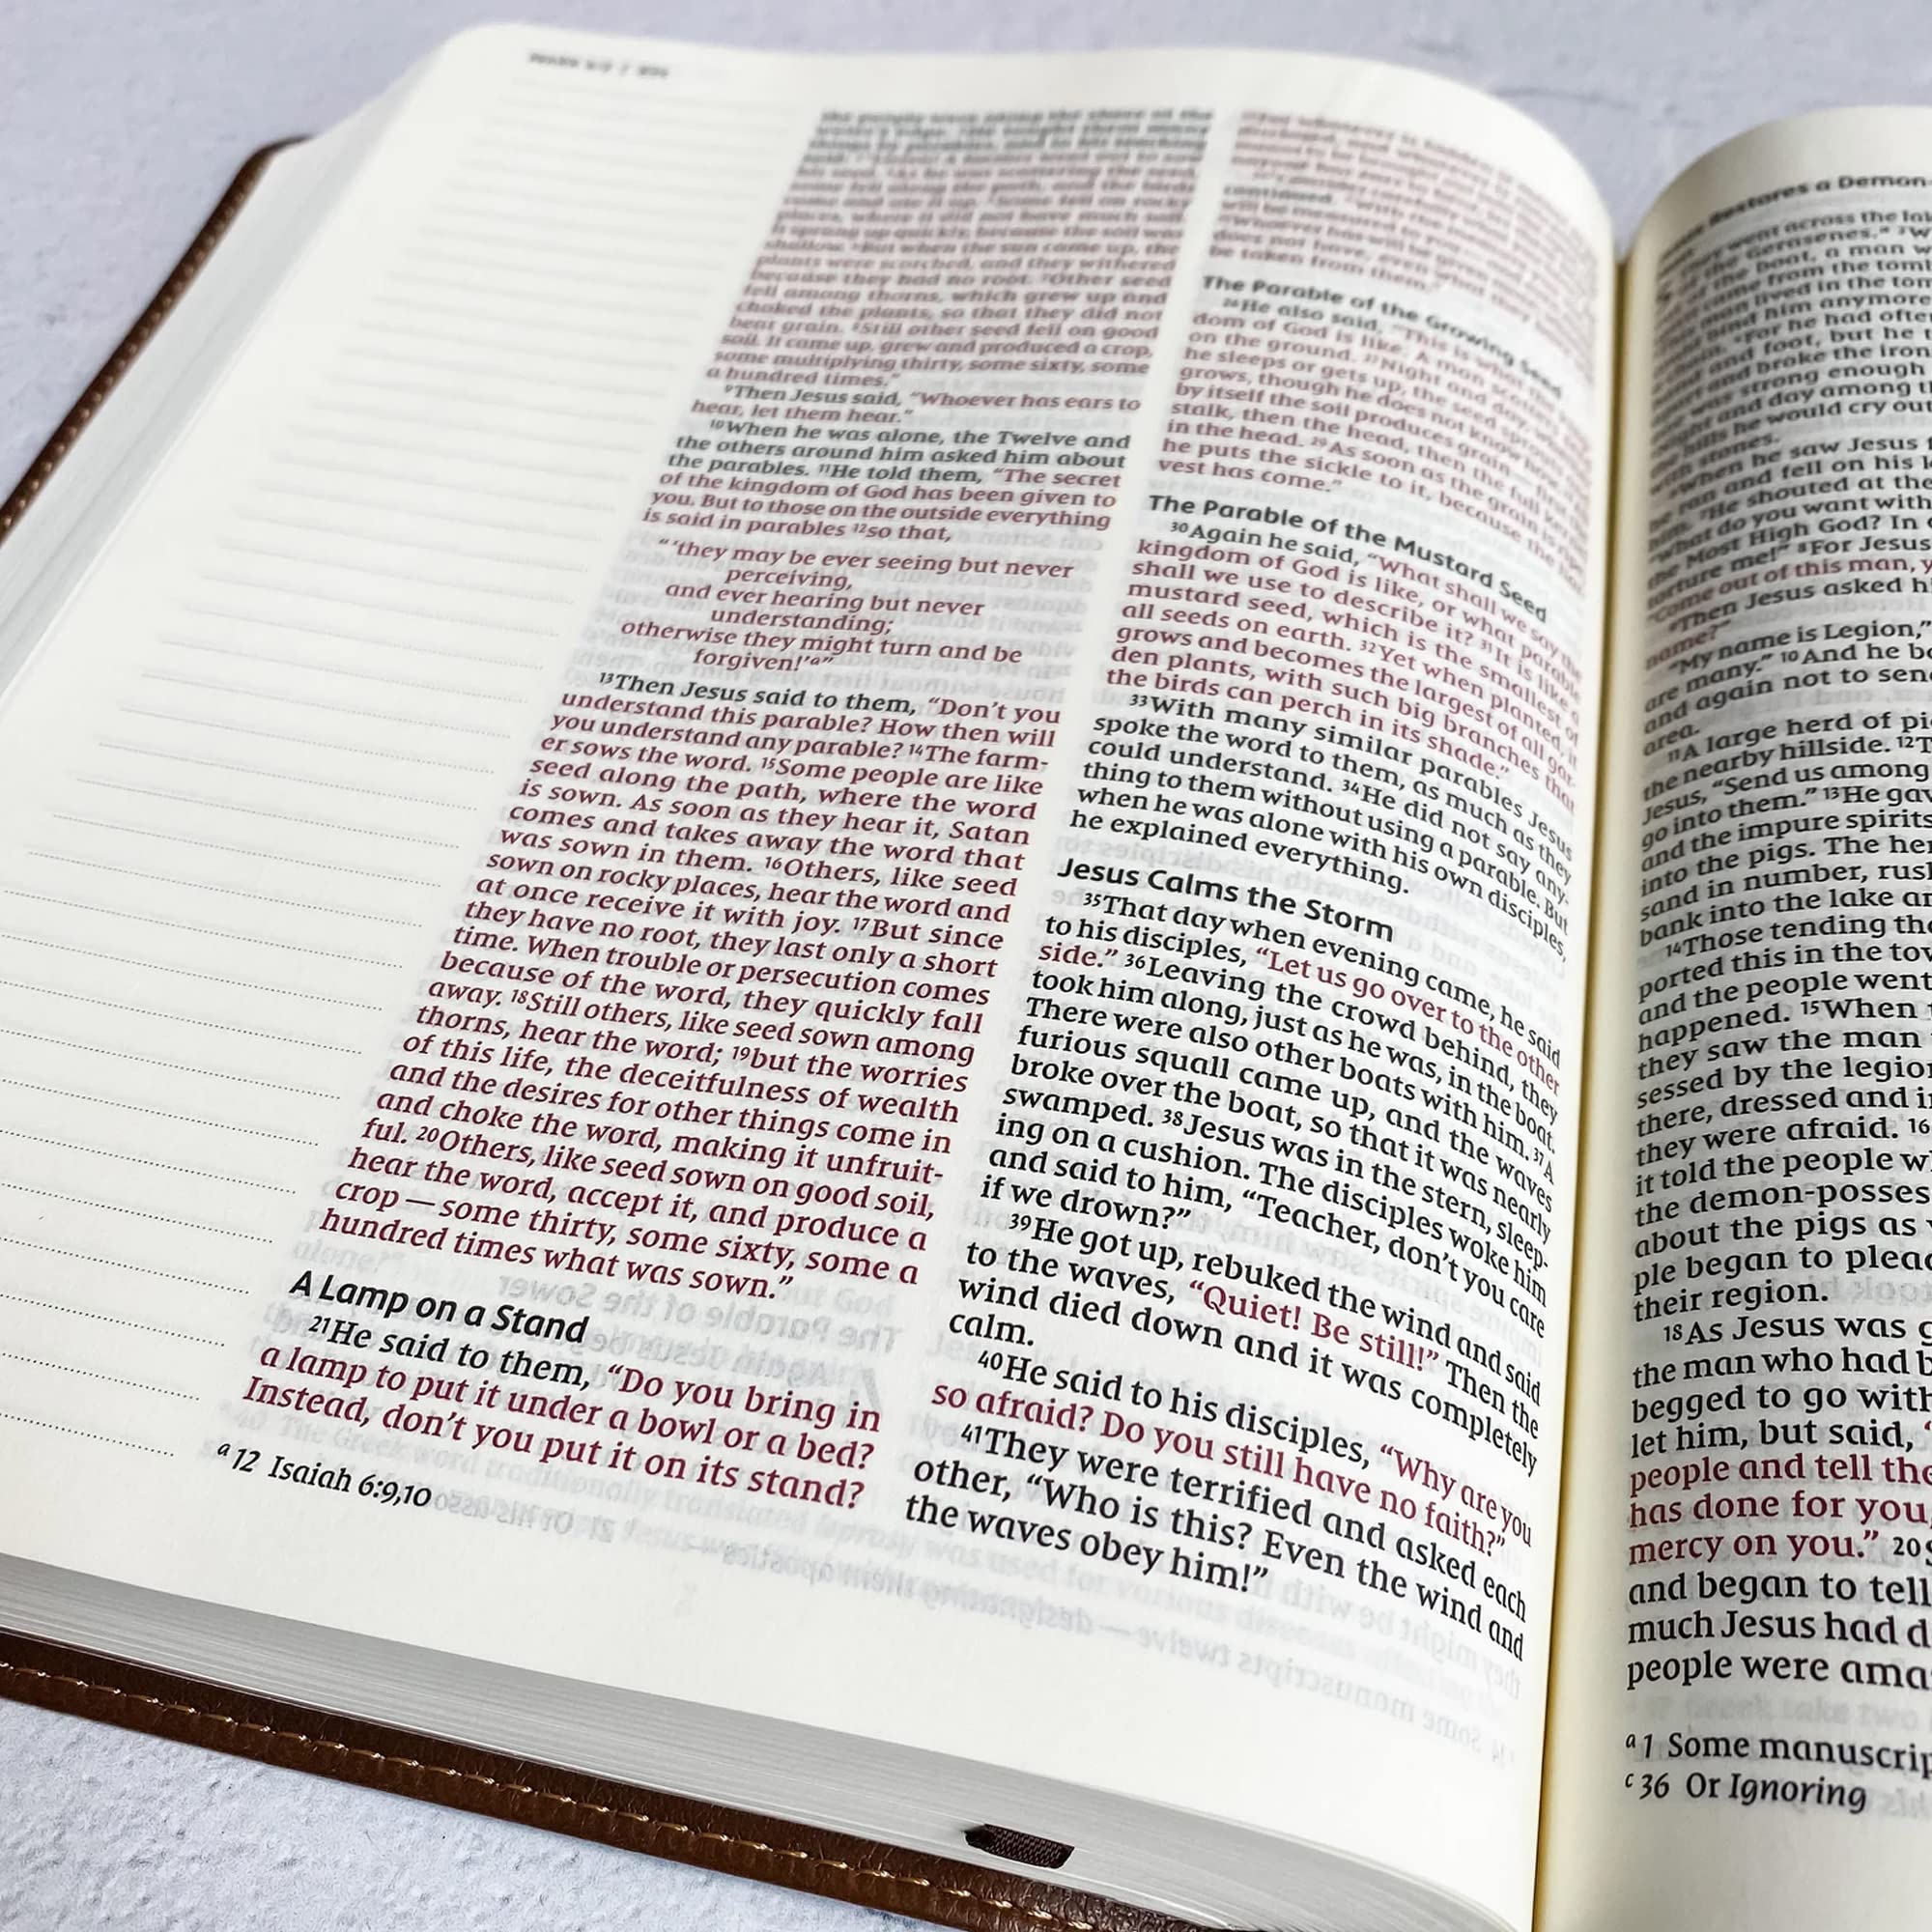 plants were scorched, and they withered
because they had no root. ⁷Other seed
fell among thorns, which grew up and
choked the plants, so that they did not
bear grain. ⁸Still other seed fell on good
soil. It came up, grew and produced a crop,
some multiplying thirty, some sixty, some
a hundred times.”
⁹Then Jesus said, “Whoever has ears to
hear, let them hear.”
¹⁰When he was alone, the Twelve and
the others around him asked him about
the parables. ¹¹He told them, “The secret
of the kingdom of God has been given to
you. But to those on the outside everything
is said in parables ¹²so that,
“ ‘they may be ever seeing but never
perceiving,
and ever hearing but never
understanding;
otherwise they might turn and be
forgiven!’ᵃ”
¹³Then Jesus said to them, “Don’t you
understand this parable? How then will
you understand any parable? ¹⁴The farm-
er sows the word. ¹⁵Some people are like
seed along the path, where the word
is sown. As soon as they hear it, Satan
comes and takes away the word that
was sown in them. ¹⁶Others, like seed
sown on rocky places, hear the word and
at once receive it with joy. ¹⁷But since
they have no root, they last only a short
time. When trouble or persecution comes
because of the word, they quickly fall
away. ¹⁸Still others, like seed sown among
thorns, hear the word; ¹⁹but the worries
of this life, the deceitfulness of wealth
and the desires for other things come in
and choke the word, making it unfruit-
ful. ²⁰Others, like seed sown on good soil,
hear the word, accept it, and produce a
crop — some thirty, some sixty, some a
hundred times what was sown.”
A Lamp on a Stand
²¹He said to them, “Do you bring in
a lamp to put it under a bowl or a bed?
Instead, don’t you put it on its stand?
ᵃ 12 Isaiah 6:9,10
The Parable of the Growing Seed
²⁶He also said, “This is what the
dom of God is like. A man scatters
on the ground. ²⁷Night and day, whether
he sleeps or gets up, the seed sprouts
grows, though he does not know how.
by itself the soil produces grain
stalk, then the head, then the full
in the head. ²⁹As soon as the grain is ripe,
he puts the sickle to it, because the har-
vest has come.”
The Parable of the Mustard Seed
³⁰Again he said, “What shall we say the
kingdom of God is like, or what parable
shall we use to describe it? ³¹It is like a
mustard seed, which is the smallest of
all seeds on earth. ³²Yet when planted, it
grows and becomes the largest of all gar-
den plants, with such big branches that
the birds can perch in its shade.”
³³With many similar parables Jesus
spoke the word to them, as much as they
could understand. ³⁴He did not say any-
thing to them without using a parable. But
when he was alone with his own disciples,
he explained everything.
Jesus Calms the Storm
³⁵That day when evening came, he said
to his disciples, “Let us go over to the other
side.” ³⁶Leaving the crowd behind, they
took him along, just as he was, in the boat.
There were also other boats with him. ³⁷A
furious squall came up, and the waves
broke over the boat, so that it was nearly
swamped. ³⁸Jesus was in the stern, sleep-
ing on a cushion. The disciples woke him
and said to him, “Teacher, don’t you care
if we drown?”
³⁹He got up, rebuked the wind and said
to the waves, “Quiet! Be still!” Then the
wind died down and it was completely
calm.
⁴⁰He said to his disciples, “Why are you
so afraid? Do you still have no faith?”
⁴¹They were terrified and asked each
other, “Who is this? Even the wind and
the waves obey him!”
Restores a Demon-
went across the
the Gerasenes.”
the boat, a man
came from the
lived in the
him anymore
For he had often
and foot, but he
and broke the iron
was strong enough
and day among
hills he would cry out
stones.
When he saw Jesus
ran and fell on his
He shouted at the
What do you want with
the Most High God? In
torture me!” ⁸For Jesus
“Come out of this man,
⁹Then Jesus asked
name?”
“My name is Legion,”
are many.” ¹⁰And he
and again not to
area.
¹¹A large herd of
the nearby hillside.
Jesus, “Send us among
go into them.” ¹³He
and the impure spirits
into the pigs. The
sand in number,
bank into the lake
¹⁴Those tending
ported this in the
and the people went
happened. ¹⁵When
they saw the man
sessed by the
there, dressed and
they were afraid. ¹⁶
it told the people
the demon-posses
about the pigs as
ple began to
their region.
¹⁸As Jesus was
the man who had
begged to go with
let him, but said, “
people and tell
has done for you,
mercy on you.” ²⁰
and began to tell
much Jesus had
people were ama
ᵃ 1 Some manuscrip
ᶜ 36 Or Ignoring